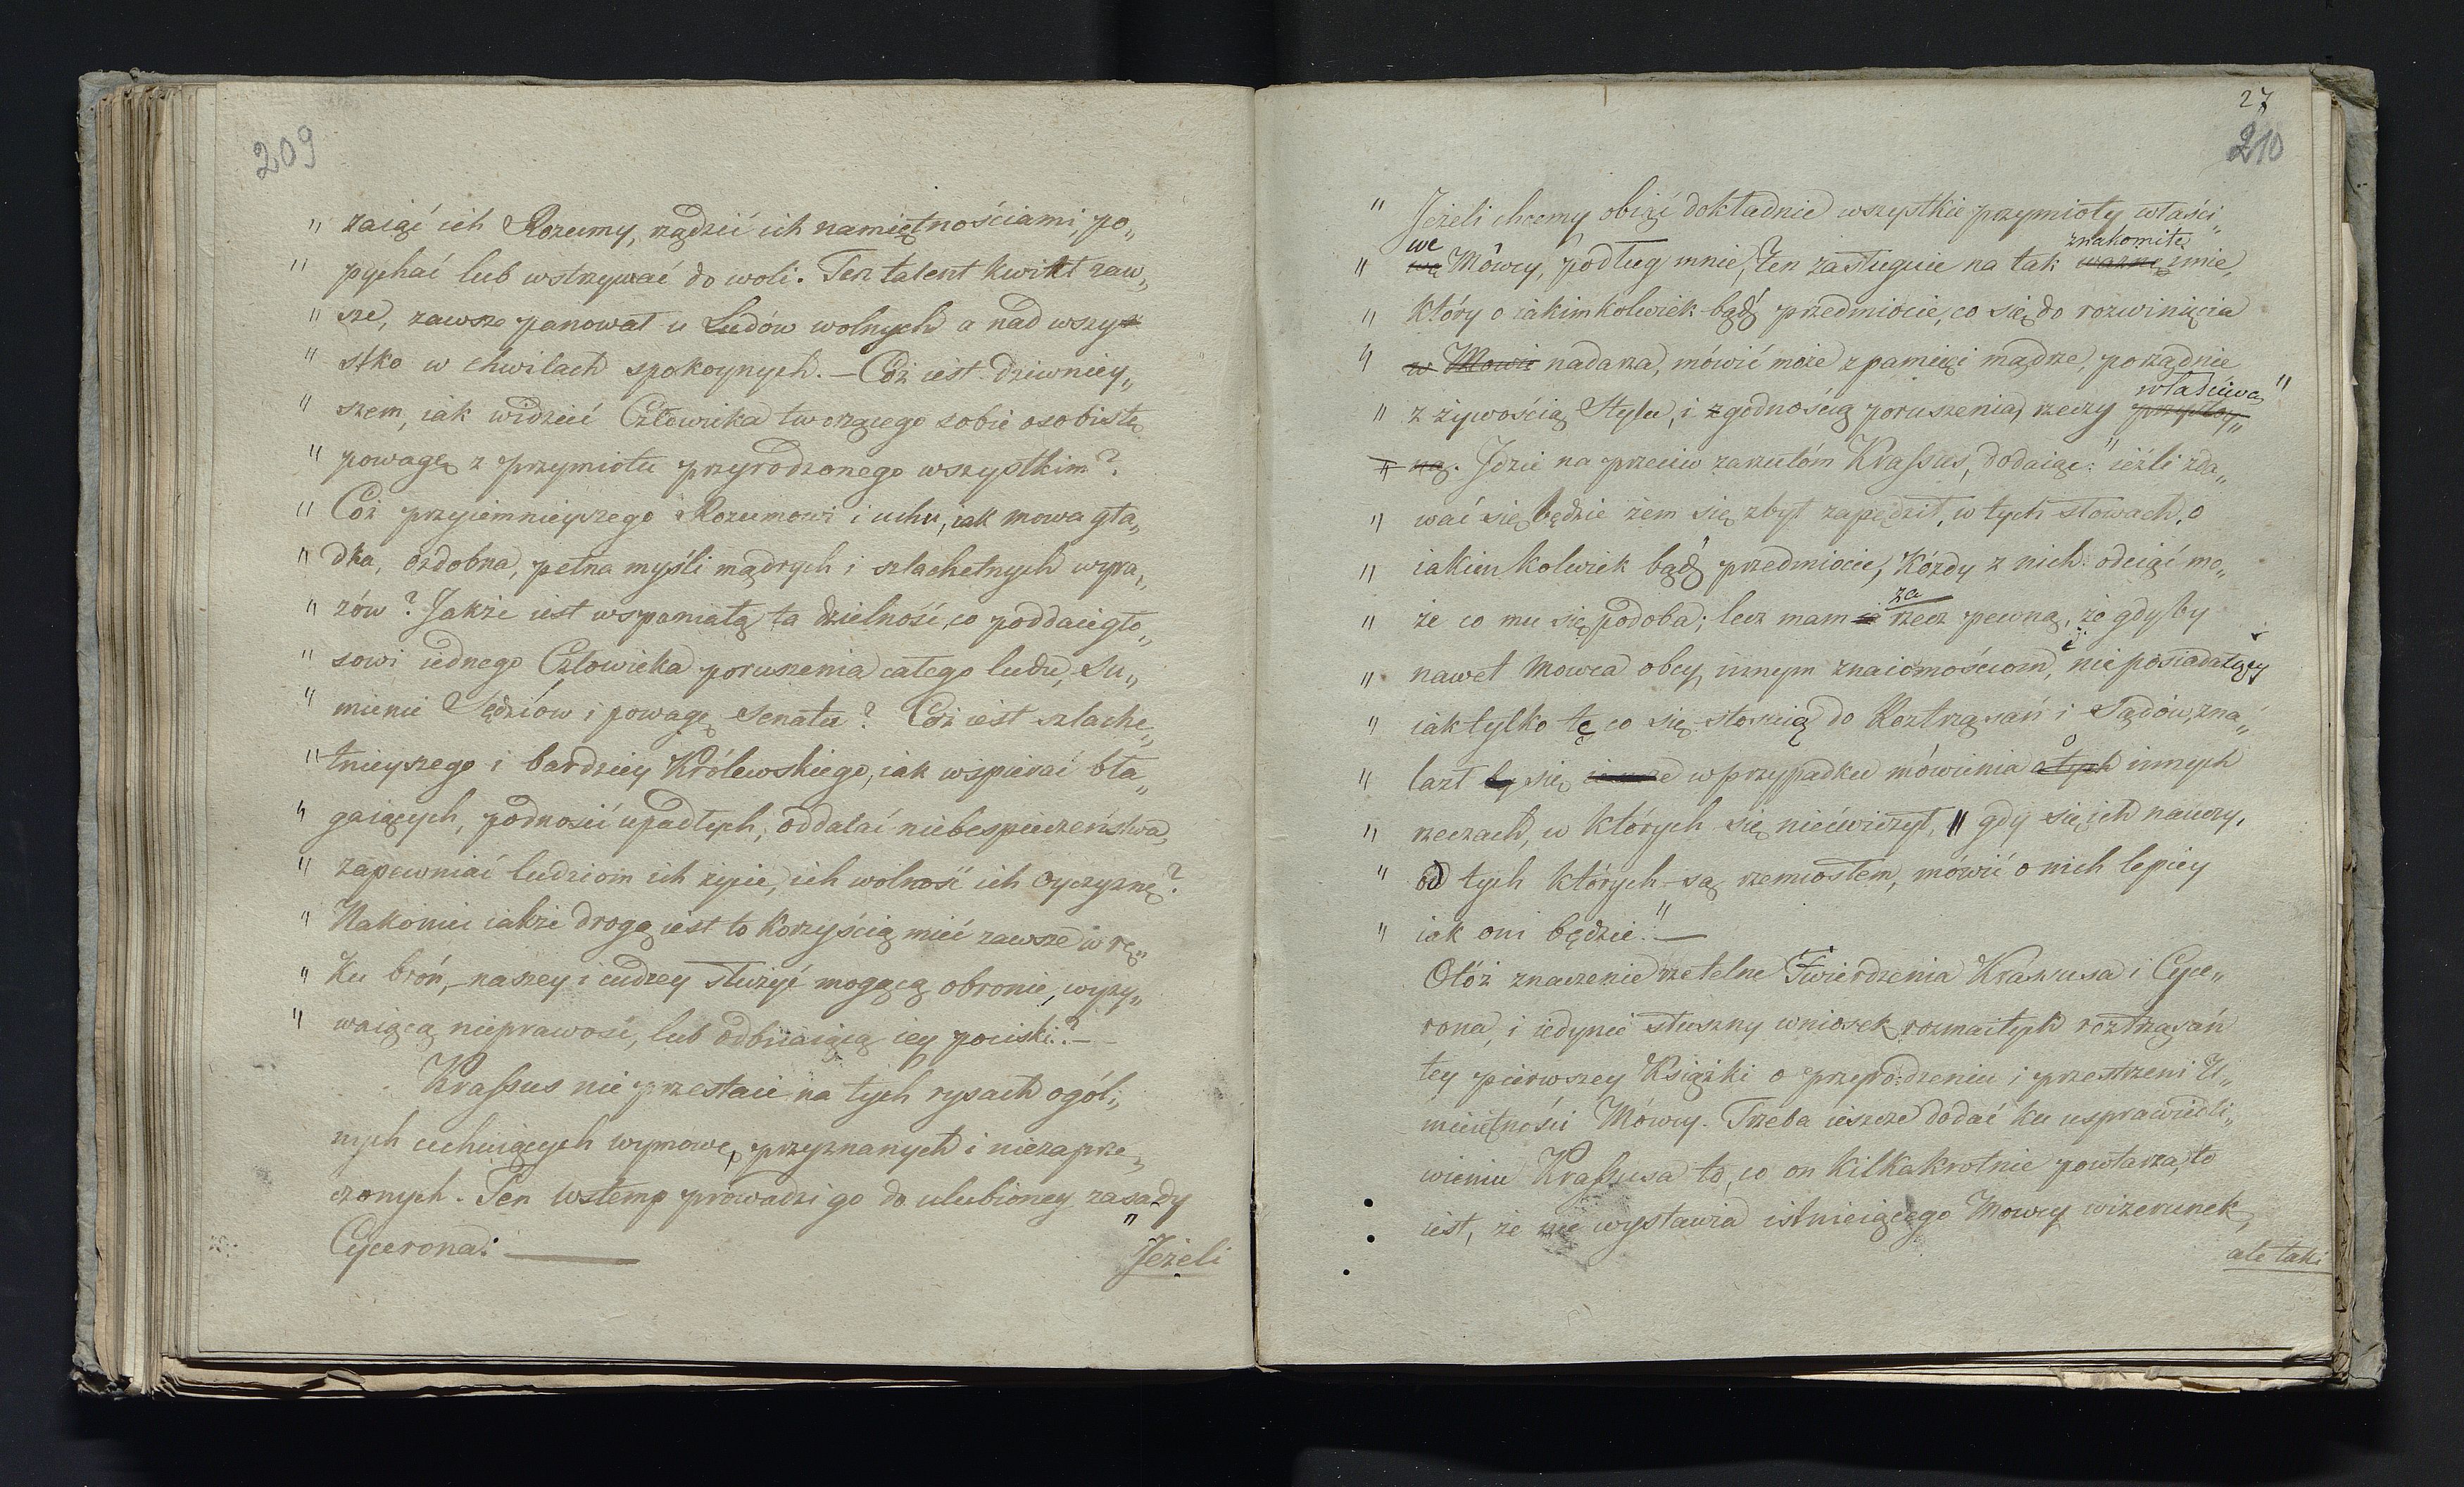 209
„ zaiąć ich Rozumy, rządzić ich namiętnościami po„
„ pychać lub wstrzymać do woli. Ten talent kwitł zaw„
„ sze, zawsze panował u Ludów wolnych a nad wszy„
„ stko w chwilach spokoynych. — Cóż iest dziwniey„
„ szem, iak widzieć Człowieka tworzącego sobie osobistą
„ powagę z przymiotu przyrodzonego wszystkim?
„ Cóż przyiemnieyszego Rozumowi i uchu, iak mowa gła„
„ dka, ozdobna, pełna myśli mądrych i szlachetnych wyra„
„ zów? Jakże iest wspaniałą ta dzielność, co poddaie gło„
„ sowi iednego Człowieka poruszenia całego ludu, Su„
„ mienie Sędziów i powagę Senatu? Cóż iest szlache„
„ tnieyszego i bardziey Królewskiego, iak wspierać bła„
„ gaiących, podnosić upadłych, oddalać niebespieczeństwa,
„ zapewniać ludziom ich życie, ich wolność ich Oyczyznę?
„ Nakoniec iakże drogą iest to korzyścią mieć zawsze w rę„
„ ku broń, naszey i cudzey służyć mogącą obronie, wyzy„
„ waiącą nieprawość, lub odbiiaiącą iey pociski? —
Krassus nie przestaie na tych rysach ogól„
nych cechuiących wymowę, przyznanych i niezaprze„
czonych. Ten wstemp prowadzi go do ulubioney zasady
Cycerona: —
„ Jeżeli
27
210
„ Jeżeli chcemy obiąć dokładnie wszystkie przymioty właści„
we znakomite
„ wą Mówcy, podług mnie, Ten zasługuie na tak ważne imie,
„ który o iakimkolwiek bądź przedmiocie, co się do rozwinięcia
„ w Mowie nadarza, mówić może z pamięci mądrze, porządnie
właściwą"
„ z żywością Stylu, i zgodnością poruszenia, rzeczy przystoy„
„ ną. Idzie na przeciw zarzutóm Krassus, dodaiąc: „ ieźli zda„
„ wać się będzie żem się zbyt zapędził, w tych słowach, o
„ iakimkolwiek bądź przedmiocie, Każdy z nich odciąć mo„
za
„ że co mu się podoba; lecz mam rzecz pewną, że gdyby
„ nawet Mowca obcy innym znaiomościom, nie posiadaiący
„ iak tylko tę co się stosuią do Roztrząsań i Sądów, zna„
o
„ lazł by się w przypadku mówienia o tych innych
„ rzeczach, w których się niećwiczył, gdy się ich nauczy,
„ od tych których są rzemiosłem, mówić o nich lepiey
„ iak oni będzie." —
Otóż znaczenie rzetelne Twierdzenia Krassusa i Cyce„
rona, i iedynie słuszny wniosek rozmaitych roztrząsań
tey pierwszey Książki o przeprodzeniu i przestrzeni U„
mieiętności Mówcy. Trzeba ieszcze dodać ku usprawiedli„
wieniu Krassusa to, co on kilkakrotnie powtarza, to
iest, że nie wystawia istnieiącego Mowcy wizerunek,
ale taki